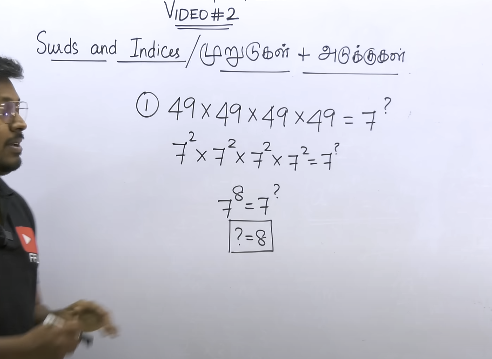 VIDEO # 2
Surds and Indices / முறுடுகள் + அடுக்குகள்
① 49 × 49 × 49 × 49 = 7^?
7² × 7² × 7² × 7² = 7^?
7⁸ = 7^?
? = 8